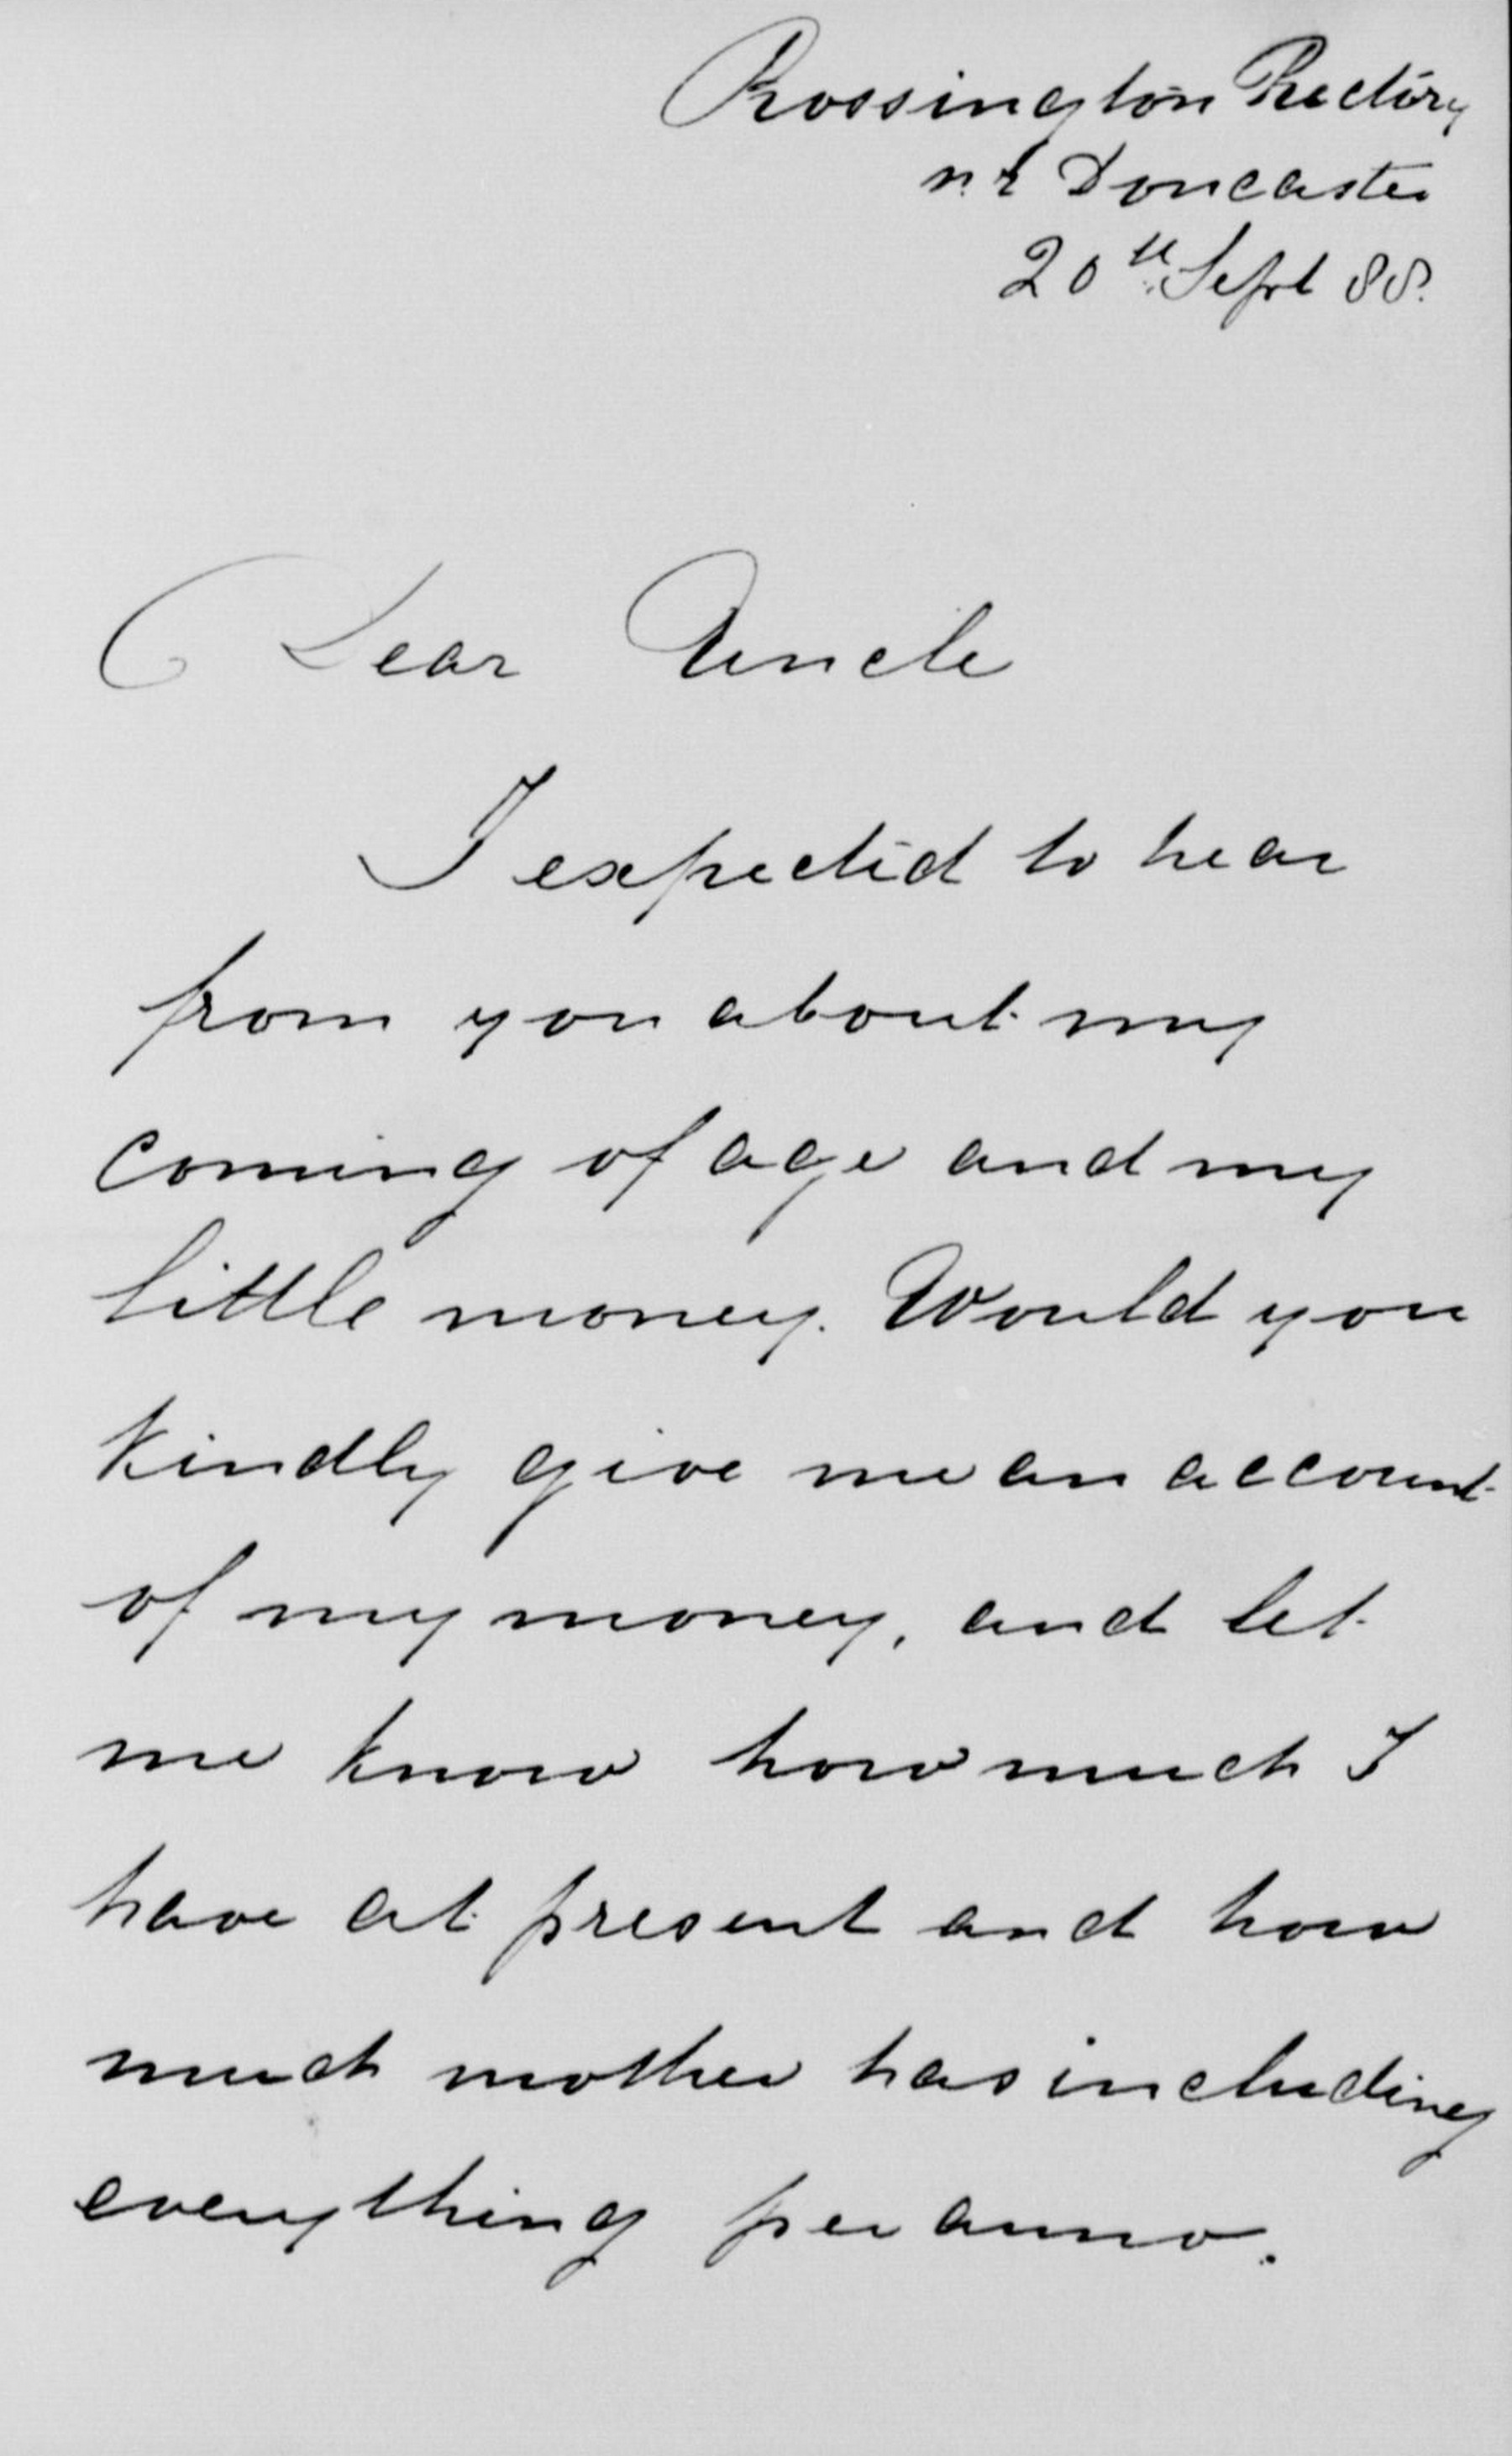 Rossington Rectory
nr Doncaster
20th Sept 88.
Dear Uncle
I expected to hear
from you about my
coming of age and my
little money. Would you
kindly give me an account
of my money, and let
me know how much I
have at present and how
much mother has including
everything per anno.